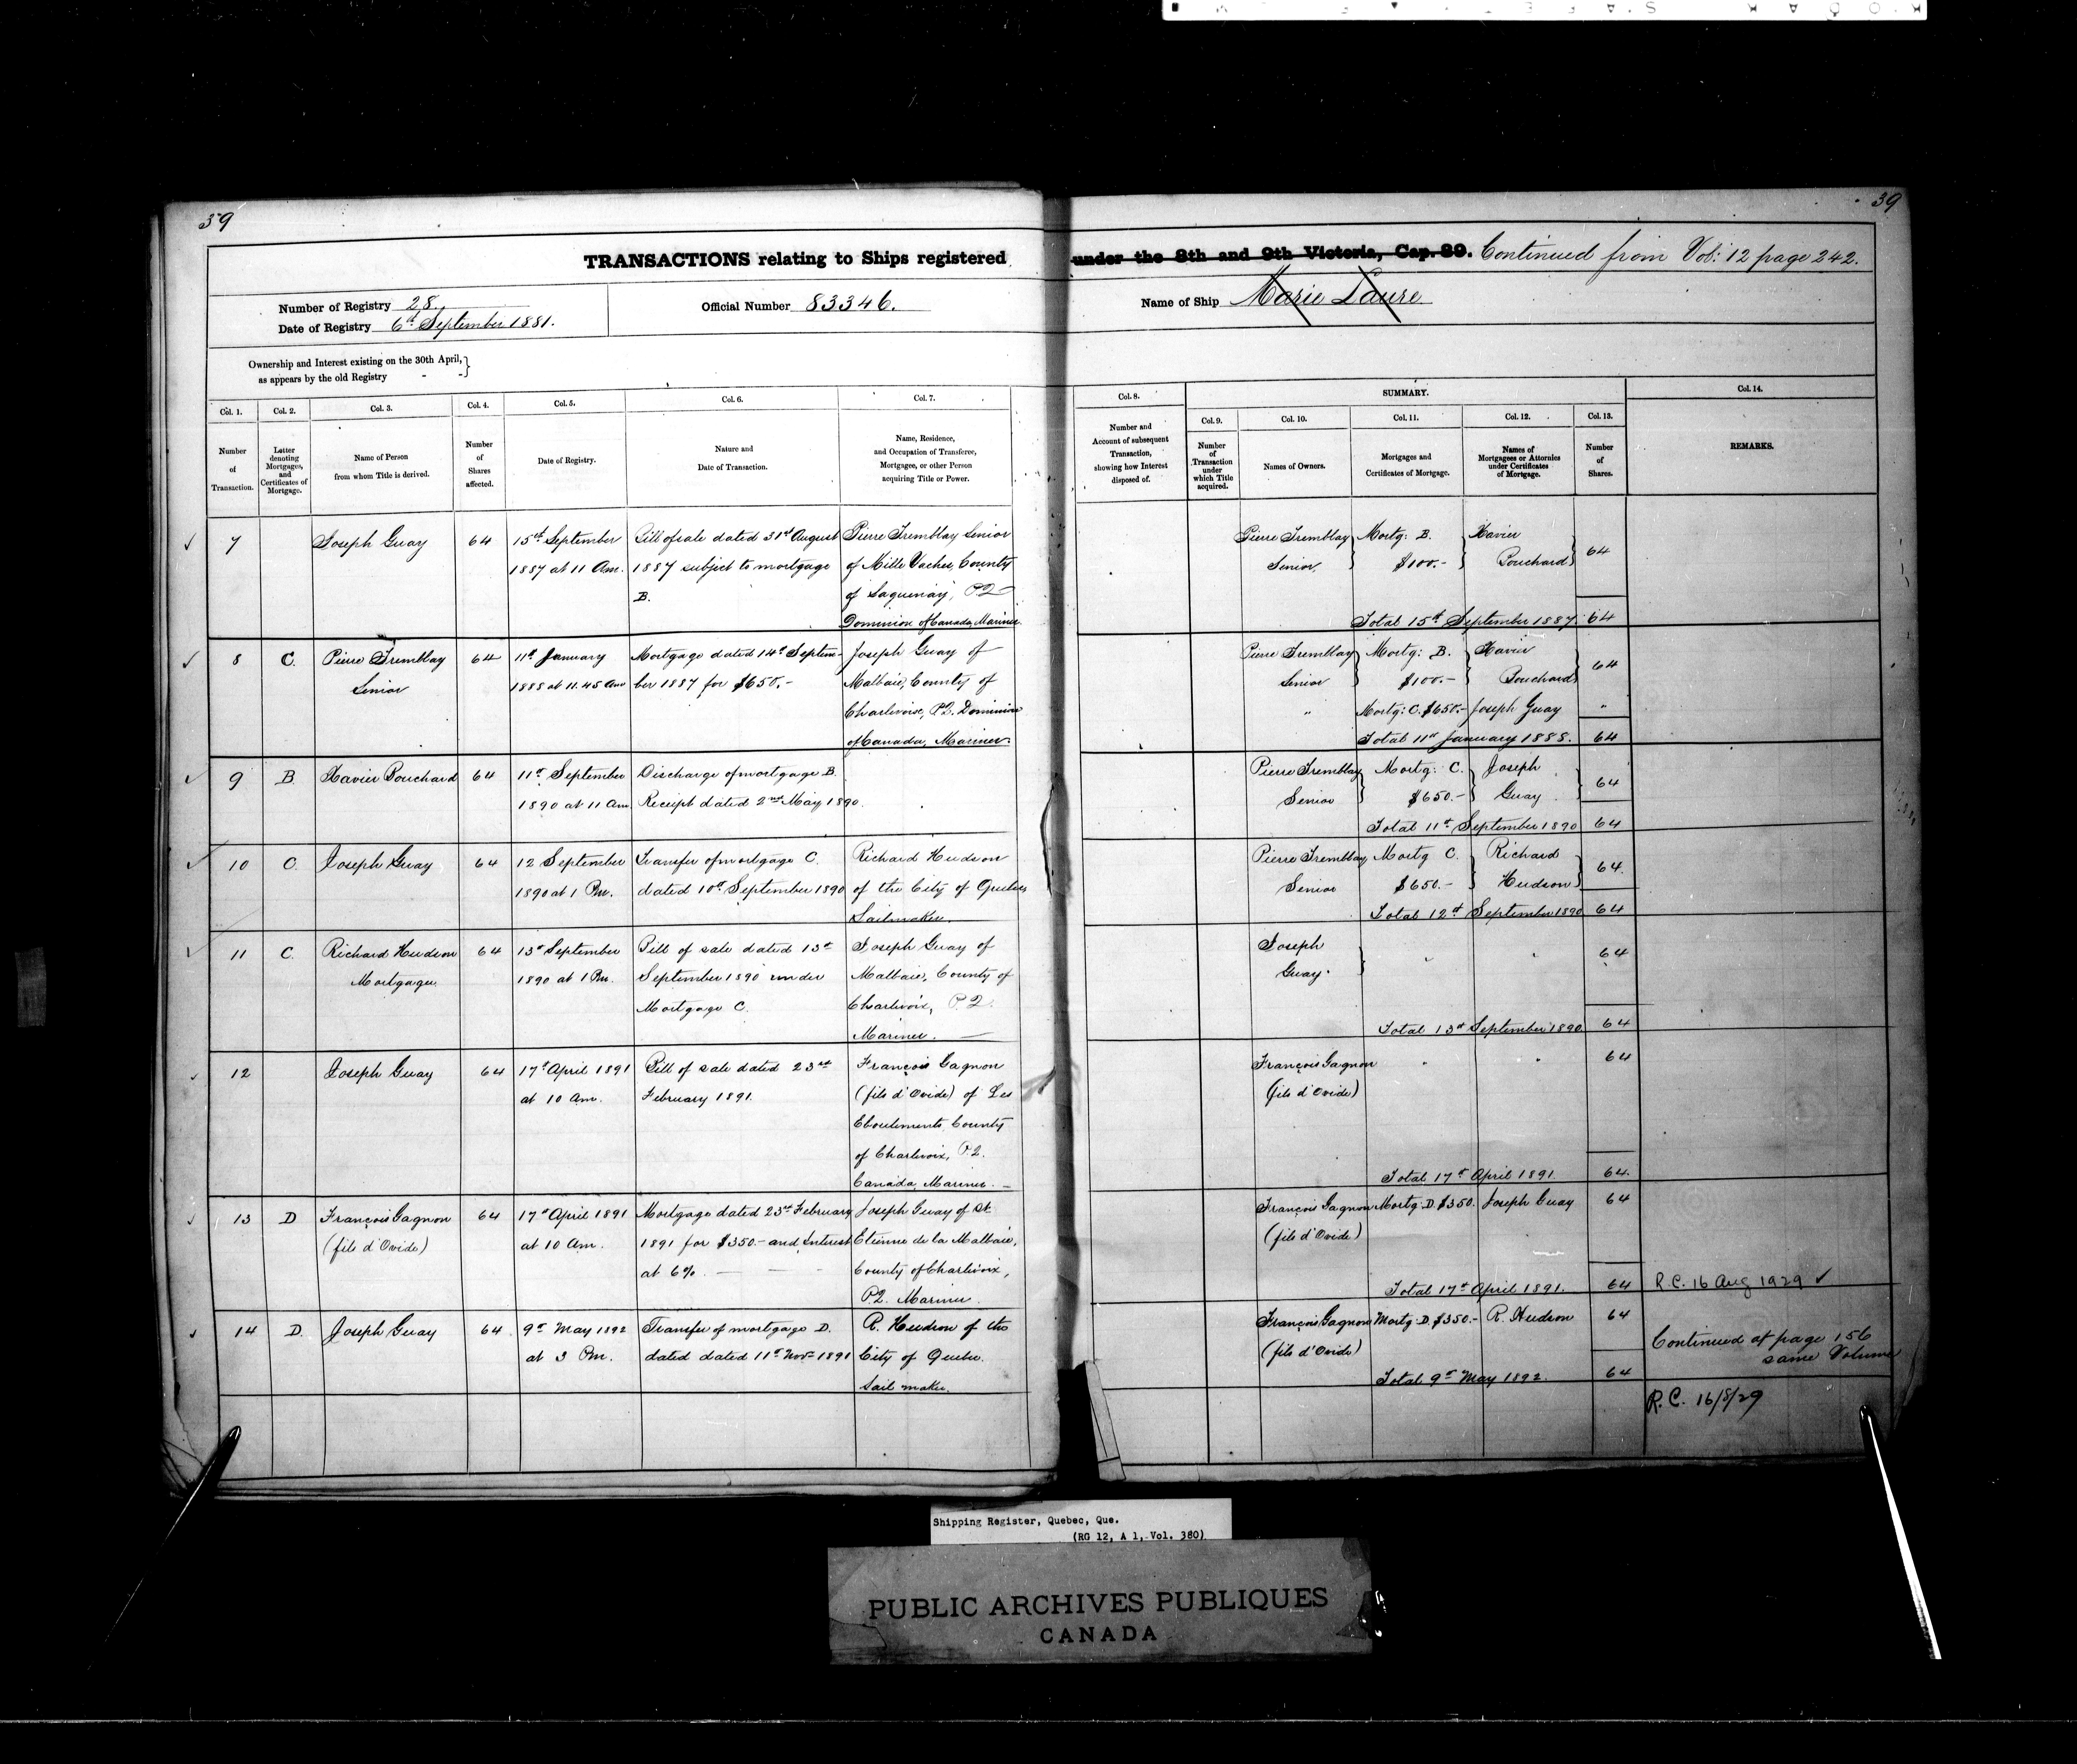 39
39
TRANSACTIONS relating to Ships registered under the 8th and 9th Victoria, Cap. 89. Continued from Vol: 12 page 242.
Number of Registry 28.
Date of Registry 6th September 1881.
Official Number 83346.
Name of Ship Marie Laure
Ownership and Interest existing on the 30th April,
as appears by the old Registry - -
Col. 1.
Number
of
Transaction.
Col. 2.
Letter
denoting
Mortgages,
and
Certificates of
Mortgage.
Col. 3.
Name of Person
from whom Title is derived.
Col. 4.
Number
of
Shares
affected.
Col. 5.
Date of Registry.
Col. 6.
Nature and
Date of Transaction.
Col. 7.
Name, Residence,
and Occupation of Transferee,
Mortgagee, or other Person
acquiring Title or Power.
Col. 8.
Number and
Account of subsequent
Transaction,
showing how Interest
disposed of.
SUMMARY.
Col. 9.
Number
of
Transaction
under
which Title
acquired.
Col. 10.
Names of Owners.
Col. 11.
Mortgages and
Certificates of Mortgage.
Col. 12.
Names of
Mortgagees or Attornies
under Certificates
of Mortgage.
Col. 13.
Number
of
Shares.
Col. 14.
REMARKS.
7
Joseph Guay
64
15th September
1887 at 11 Am.
Bill of sale dated 31st August
1887 subject to mortgage
B.
Pierre Tremblay Senior
of Mille Vaches, County
of Saguenay, P.Q
Dominion of Canada, Mariner
Pierre Tremblay
Senior
Mortg: B.
$100.-
Xavier
Bouchard
64
Total 15th September 1887. 64
8
C.
Pierre Tremblay
Senior
64
11th January
1888 at 11.45 Am
Mortgage dated 14th Septem-
ber 1887 for $650.-
Joseph Guay of
Malbaie, County of
Charlevoix, P.Q. Dominion
of Canada, Mariner.
Pierre Tremblay
Senior
Mortg: B.
$100.-
Xavier
Bouchard
64
" Mortg: C. $650.- Joseph Guay "
Total 11th January 1888. 64
9
B
Xavier Bouchard
64
11th September
1890 at 11 Am.
Discharge of mortgage B.
Receipt dated 2nd May 1890.
Pierre Tremblay
Senior
Mortg: C.
$650.-
Joseph
Guay
64
Total 11th September 1890 64
10
C.
Joseph Guay
64
12 September
1890 at 1 Pm.
Transfer of mortgage C.
dated 10th September 1890
Richard Hudson
of the City of Quebec
Sailmaker.
Pierre Tremblay
Senior
Mortg C.
$650.-
Richard
Hudson
64.
Total 12th September 1890 64
11
C.
Richard Hudson
Mortgagee.
64
13th September
1890 at 1 Pm.
Bill of sale dated 13th
September 1890 under
Mortgage C.
Joseph Guay of
Malbaie, County of
Charlevoix, P.Q.
Mariner.
Joseph
Guay.
64
Total 13th September 1890 64
12
Joseph Guay
64
17th April 1891
at 10 Am.
Bill of sale dated 23rd
February 1891.
François Gagnon
(fils d'Ovide) of Les
Eboulements, County
of Charlevoix, P.Q.
Canada, Mariner. -
François Gagnon
(fils d'Ovide)
64
Total 17th April 1891. 64.
13
D
François Gagnon
(fils d'Ovide)
64
17th April 1891
at 10 Am.
Mortgage dated 23rd February
1891 for $350.- and Interest
at 6%.
Joseph Guay of St.
Etienne de la Malbaie,
County of Charlevoix,
P.Q. Mariner.
François Gagnon
(fils d'Ovide)
Mortg. D. $350. Joseph Guay 64
Total 17th April 1891. 64
R.C. 16 Aug 1929 ✓
14
D.
Joseph Guay
64.
9th May 1892
at 3 Pm.
Transfer of mortgage D.
dated dated 11th Nov. 1891
R. Hudson of the
City of Quebec.
Sail maker.
François Gagnon
(fils d'Ovide)
Mortg. D. $350.- R. Hudson 64
Total 9th May 1892. 64
Continued at page 156
same Volume
R.C. 16/8/29
Shipping Register, Quebec, Que.
(RG 12, A 1, Vol. 380)
PUBLIC ARCHIVES PUBLIQUES
CANADA